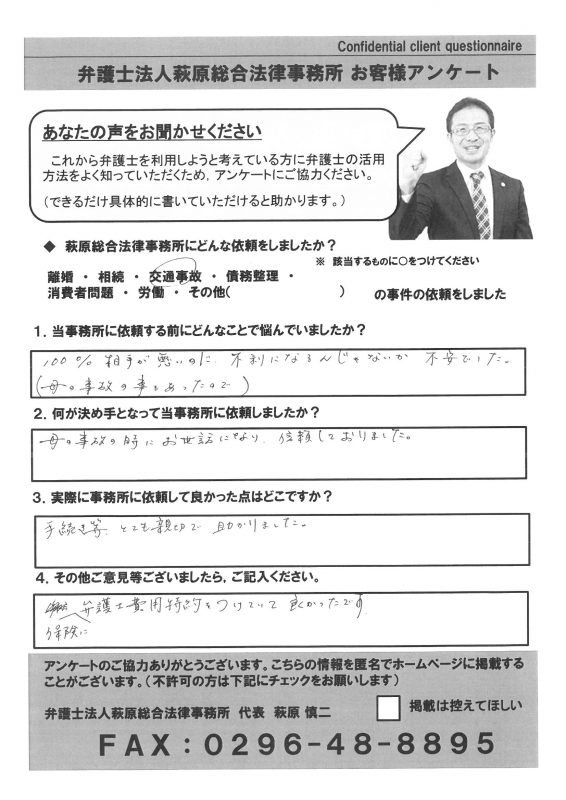 Confidential client questionnaire
弁護士法人萩原総合法律事務所 お客様アンケート
あなたの声をお聞かせください
これから弁護士を利用しようと考えている方に弁護士の活用
方法をよく知っていただくため,アンケートにご協力ください。
(できるだけ具体的に書いていただけると助かります。)
◆ 萩原総合法律事務所にどんな依頼をしましたか?
※ 該当するものに○をつけてください
離婚 ・ 相続 ・ 交通事故 ・ 債務整理 ・
消費者問題 ・ 労働 ・ その他( ) の事件の依頼をしました
1.当事務所に依頼する前にどんなことで悩んでいましたか?
100% 相手が悪いのに、不利になるんじゃないか 不安でした。
(母の事故の事もあったので)
2.何が決め手となって当事務所に依頼しましたか?
母の事故の時にお世話になり、信頼しておりました。
3.実際に事務所に依頼して良かった点はどこですか?
手続き等、とても親切で 助かりました。
4.その他ご意見等ございましたら,ご記入ください。
弁護士費用特約をつけていて 良かったです
保険に
アンケートのご協力ありがとうございます。こちらの情報を匿名でホームページに掲載する
ことがございます。(不許可の方は下記にチェックをお願いします)
弁護士法人萩原総合法律事務所 代表 萩原 慎二 掲載は控えてほしい
FAX:0296-48-8895